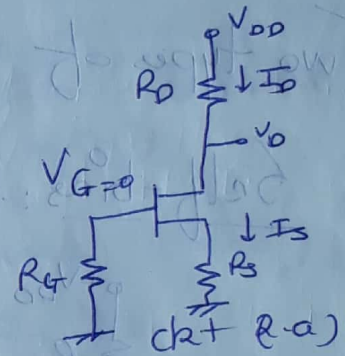 VDD
RD ↓ ID
VD
VG=0
↓ IS
RG
RS
Ckt (2.a)